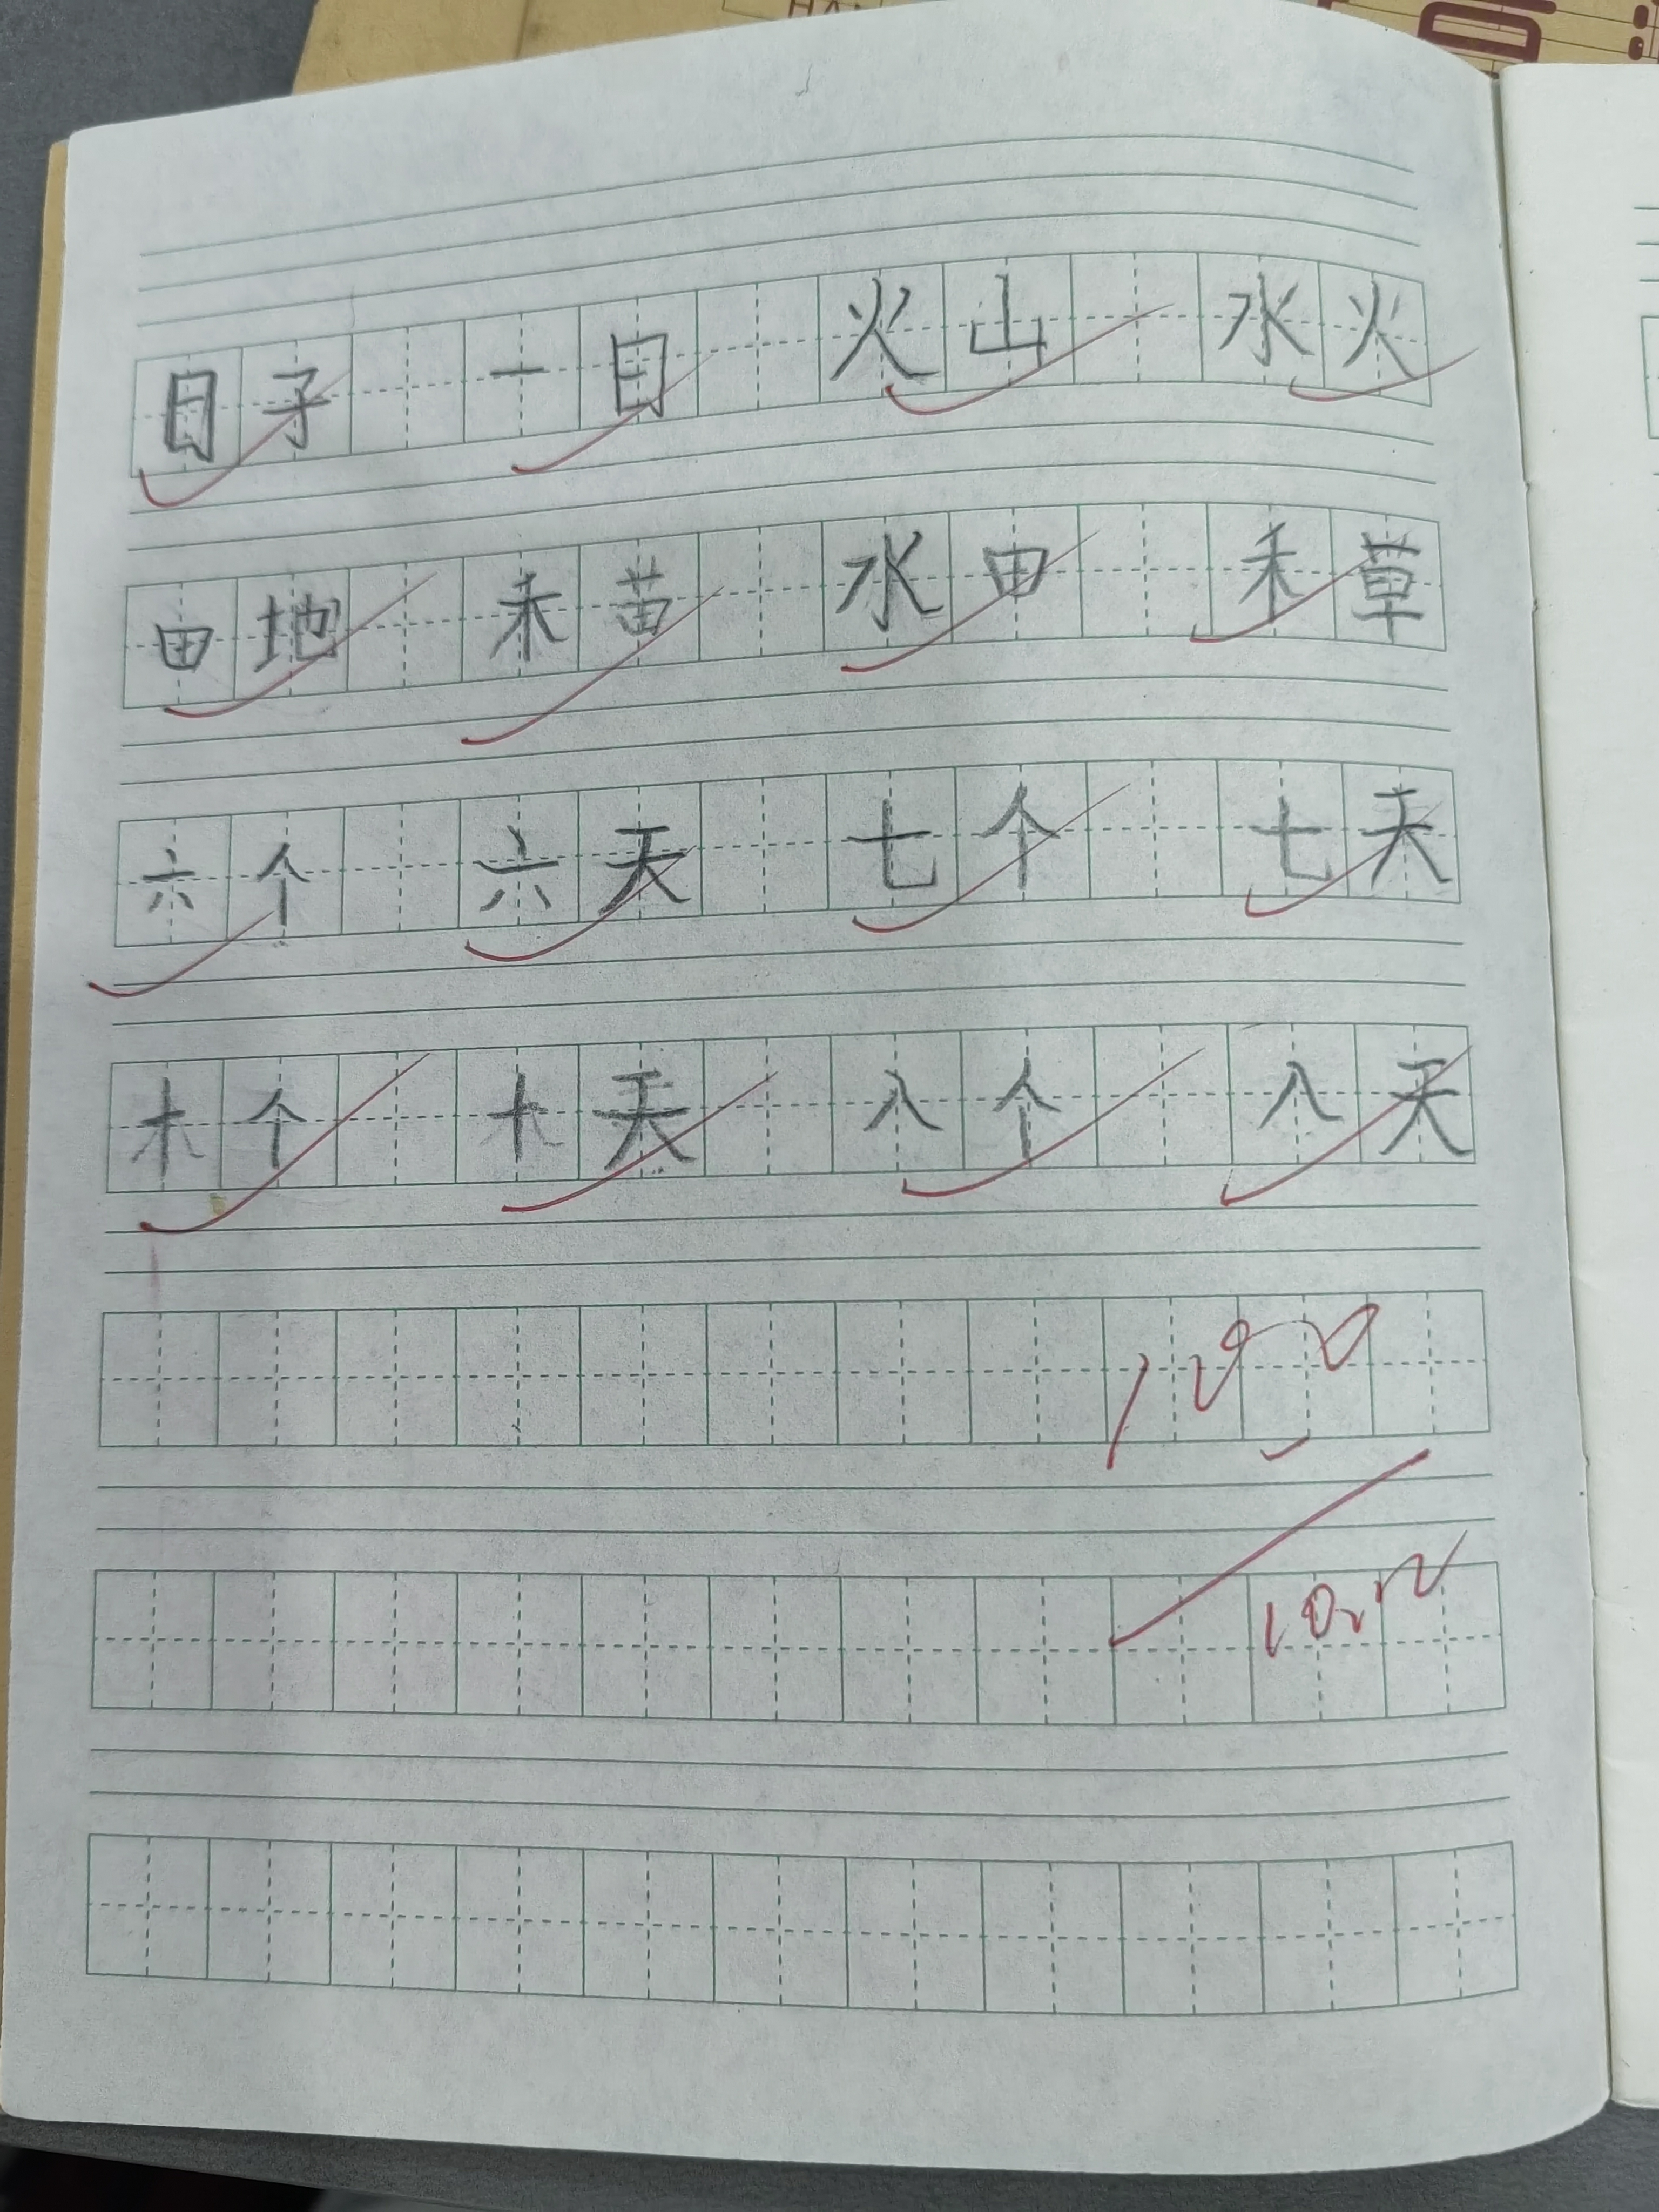 日子 一日 火山 水火
田地 禾苗 水田 禾草
六个 六天 七个 七天
十个 十天 八个 八天
100
10.22